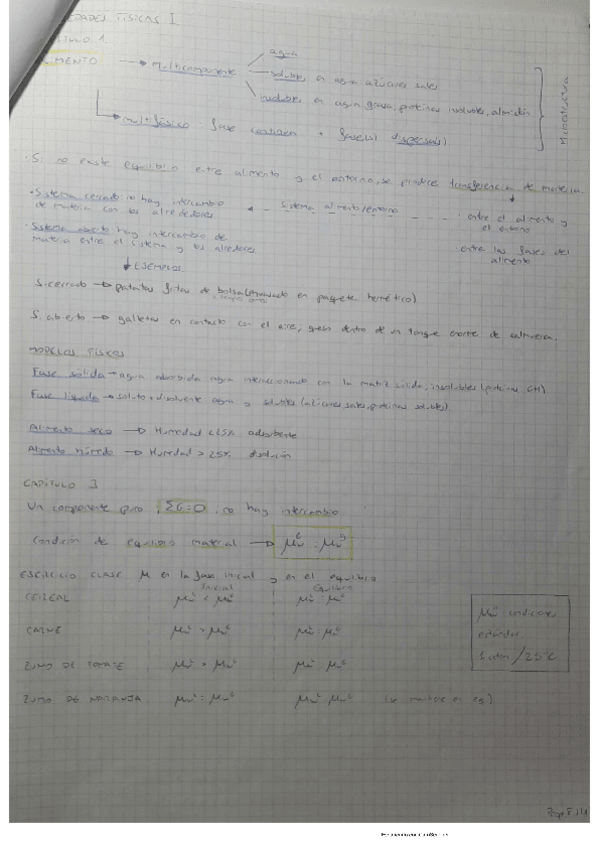 EDADES FÍSICAS I
TULO 1.
LIMENTO → Multicomponente
agua
solubles en agua: azúcares, sales
insolubles en agua: grasa, proteínas insolubles, almidón
multifásico: fase continua + fase(s) dispersa(s)
Si no existe equilibrio entre alimento y el entorno, se produce transferencia de materia.
Sistema cerrado no hay intercambio
de materia con los alrededores
Sistema alimento/entorno
entre el alimento y
el entorno
Sistema abierto hay intercambio de
materia entre el sistema y los alrededores
entre las fases del
alimento
EJEMPLOS
S. cerrado → patatas fritas de bolsa (envasado en paquete hermético)
S. abierto → galletas en contacto con el aire, queso dentro de un tanque enorme de salmuera.
MODELOS FÍSICOS
Fase sólida → agua adsorbida agua interaccionando con la matriz sólida, insolubles (proteínas, CH)
Fase líquida → soluto + disolvente agua y solubles (azúcares, sales, proteínas solubles)
Alimento seco → Humedad < 25% adsorbente
Alimento húmedo → Humedad > 25% disolución
CAPÍTULO 3
Un componente puro, ΣG=0, no hay intercambio
Condición de equilibrio material →
EJERCICIO CLASE μ en la fase inicial y en el equilibrio
Inicial Equilibrio
CEREAL
CARNE
ZUMO DE TOMATE
ZUMO DE NARANJA (se mantiene en eq)
condiciones
estándar
1 atm / 25°C